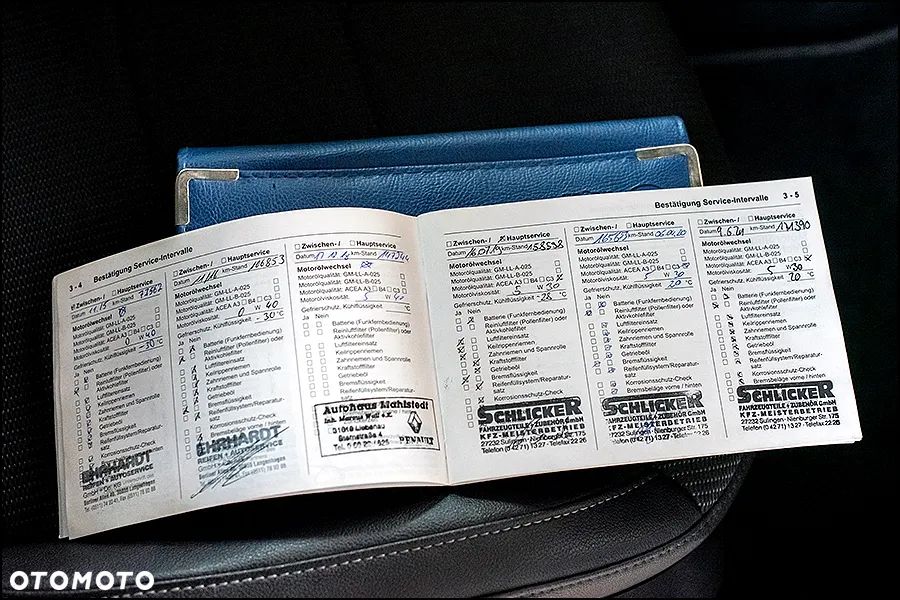 3 - 4 Bestätigung Service-Intervalle
Zwischen- / Hauptservice
Datum 11.15 km-Stand 73582
Motorölwechsel
Motorölqualität: GM-LL-A-025
Motorölqualität: GM-LL-B-025
Motorölqualität: ACEA A3 B4 C3
Motorölviskosität: 0 W 40
Gefrierschutz, Kühlflüssigkeit -30 °C
Ja Nein
Batterie (Funkfernbedienung)
Reinluftfilter (Pollenfilter) oder
Aktivkohlefilter
Luftfiltereinsatz
Keilrippenriemen
Zahnriemen und Spannrolle
Kraftstofffilter
Getriebeöl
Bremsflüssigkeit
Reifenfüllsystem/Reparatur-
satz
EHRHARDT
REIFEN + AUTOSERVICE
Zwischen- / Hauptservice
km-Stand 106853
Motorölwechsel
Motorölqualität: GM-LL-A-025
Motorölqualität: GM-LL-B-025
Motorölqualität: ACEA A3 B4 C3
Motorölviskosität: 0 W 40
Gefrierschutz, Kühlflüssigkeit -30 °C
Ja Nein
Batterie (Funkfernbedienung)
Reinluftfilter (Pollenfilter) oder
Aktivkohlefilter
Luftfiltereinsatz
Keilrippenriemen
Zahnriemen und Spannrolle
Kraftstofffilter
Getriebeöl
Bremsflüssigkeit
Reifenfüllsystem/Reparatur-
satz
Korrosionsschutz-Check
EHRHARDT
REIFEN + AUTOSERVICE
Zwischen- / Hauptservice
Datum km-Stand
Motorölwechsel
Motorölqualität: GM-LL-A-025
Motorölqualität: GM-LL-B-025
Motorölqualität: ACEA A3 B4 C3
Motorölviskosität: 5 W 40
Gefrierschutz, Kühlflüssigkeit °C
Ja Nein
Batterie (Funkfernbedienung)
Reinluftfilter (Pollenfilter) oder
Aktivkohlefilter
Luftfiltereinsatz
Keilrippenriemen
Zahnriemen und Spannrolle
Kraftstofffilter
Getriebeöl
Bremsflüssigkeit
Reifenfüllsystem/Reparatur-
satz
Autohaus
RENAULT
Bestätigung Service-Intervalle 3 - 5
Zwischen- / Hauptservice
Datum km-Stand 158538
Motorölwechsel
Motorölqualität: GM-LL-A-025
Motorölqualität: GM-LL-B-025
Motorölqualität: ACEA A3 B4 C3
Motorölviskosität: 5 W 30
Gefrierschutz, Kühlflüssigkeit -25 °C
Ja Nein
Batterie (Funkfernbedienung)
Reinluftfilter (Pollenfilter) oder
Aktivkohlefilter
Luftfiltereinsatz
Keilrippenriemen
Zahnriemen und Spannrolle
Kraftstofffilter
Getriebeöl
Bremsflüssigkeit
Reifenfüllsystem/Reparatur-
satz
Korrosionsschutz-Check
SCHLICKER
FAHRZEUGTEILE + ZUBEHÖR GmbH
KFZ-MEISTERBETRIEB
27232 Sulingen · Nienburger Str. 175
Telefon (0 42 71) 13 27 · Telefax 22 26
Zwischen- / Hauptservice
Datum km-Stand
Motorölwechsel
Motorölqualität: GM-LL-A-025
Motorölqualität: GM-LL-B-025
Motorölqualität: ACEA A3 B4 C3
Motorölviskosität: 5 W 30
Gefrierschutz, Kühlflüssigkeit 20 °C
Ja Nein
Batterie (Funkfernbedienung)
Reinluftfilter (Pollenfilter) oder
Aktivkohlefilter
Luftfiltereinsatz
Keilrippenriemen
Zahnriemen und Spannrolle
Kraftstofffilter
Getriebeöl
Bremsflüssigkeit
Reifenfüllsystem/Reparatur-
satz
Korrosionsschutz-Check
Bremsbeläge vorne / hinten
SCHLICKER
FAHRZEUGTEILE + ZUBEHÖR GmbH
KFZ-MEISTERBETRIEB
27232 Sulingen · Nienburger Str. 175
Telefon (0 42 71) 13 27 · Telefax 22 26
Zwischen- / Hauptservice
Datum 9.6.21 km-Stand
Motorölwechsel
Motorölqualität: GM-LL-A-025
Motorölqualität: GM-LL-B-025
Motorölqualität: ACEA A3 B4 C3
Motorölviskosität: 5 W 30
Gefrierschutz, Kühlflüssigkeit 20 °C
Ja Nein
Batterie (Funkfernbedienung)
Reinluftfilter (Pollenfilter) oder
Aktivkohlefilter
Luftfiltereinsatz
Keilrippenriemen
Zahnriemen und Spannrolle
Kraftstofffilter
Getriebeöl
Bremsflüssigkeit
Reifenfüllsystem/Reparatur-
satz
Korrosionsschutz-Check
Bremsbeläge vorne / hinten
SCHLICKER
FAHRZEUGTEILE + ZUBEHÖR GmbH
KFZ-MEISTERBETRIEB
27232 Sulingen · Nienburger Str. 175
Telefon (0 42 71) 13 27 · Telefax 22 26
OTOMOTO